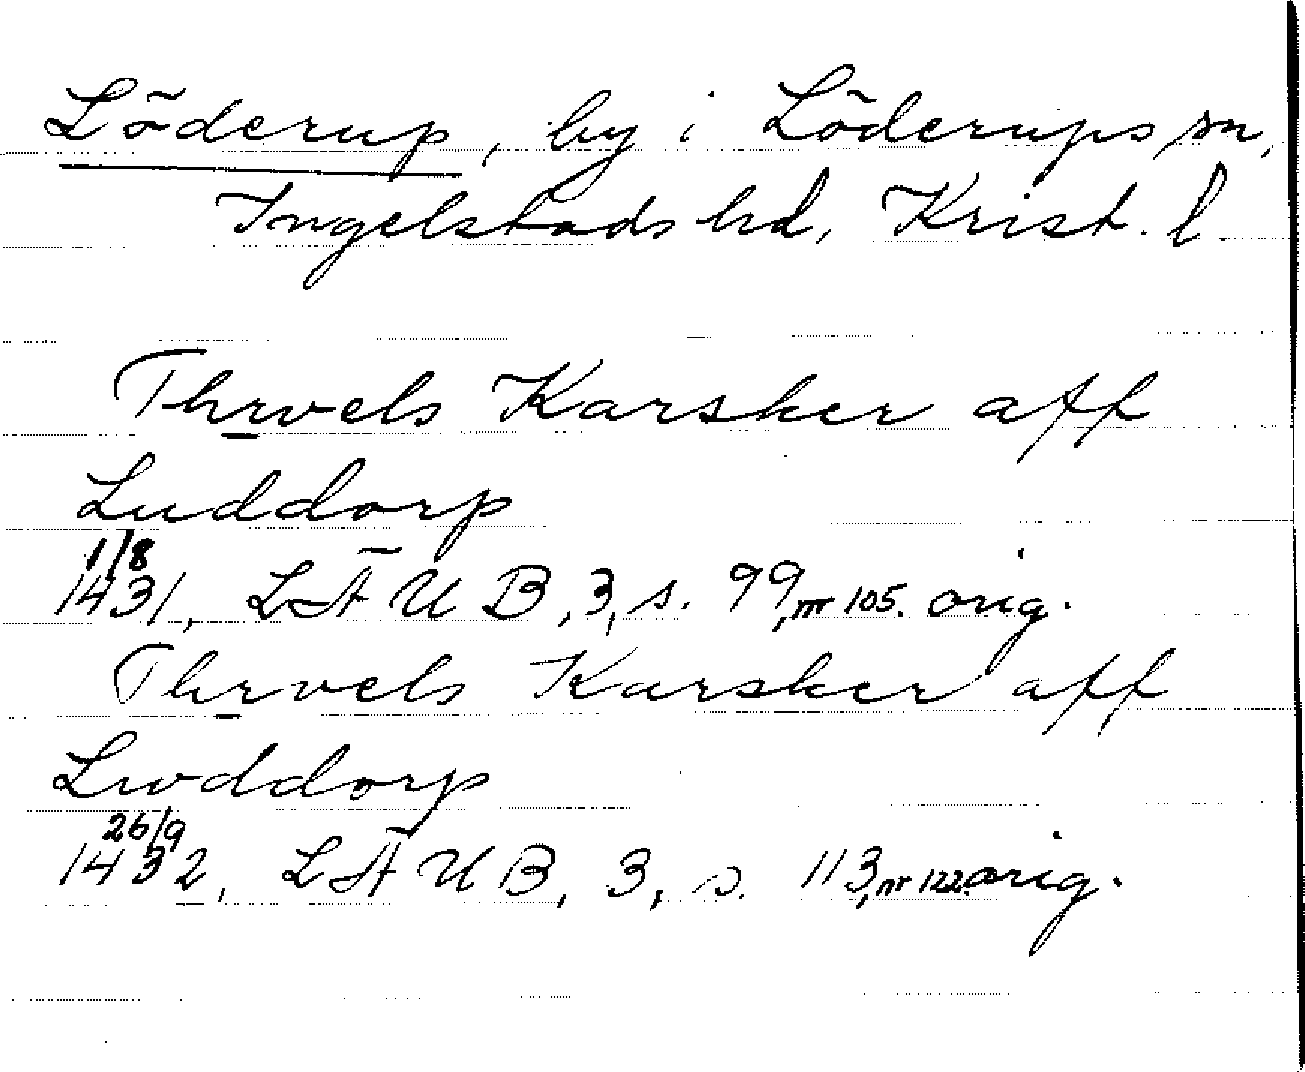 Löderup, by i Löderups sn,
Ingelstads hd, Krist. l
Thrvels Karsker aff
Luddorp
1/8
1431, LÄUB, 3, s. 99, nr 105. orig.
Thrvels Karsker aff
Lwddorp
26/9
1432, LÄUB, 3, s. 113, nr 122. orig.